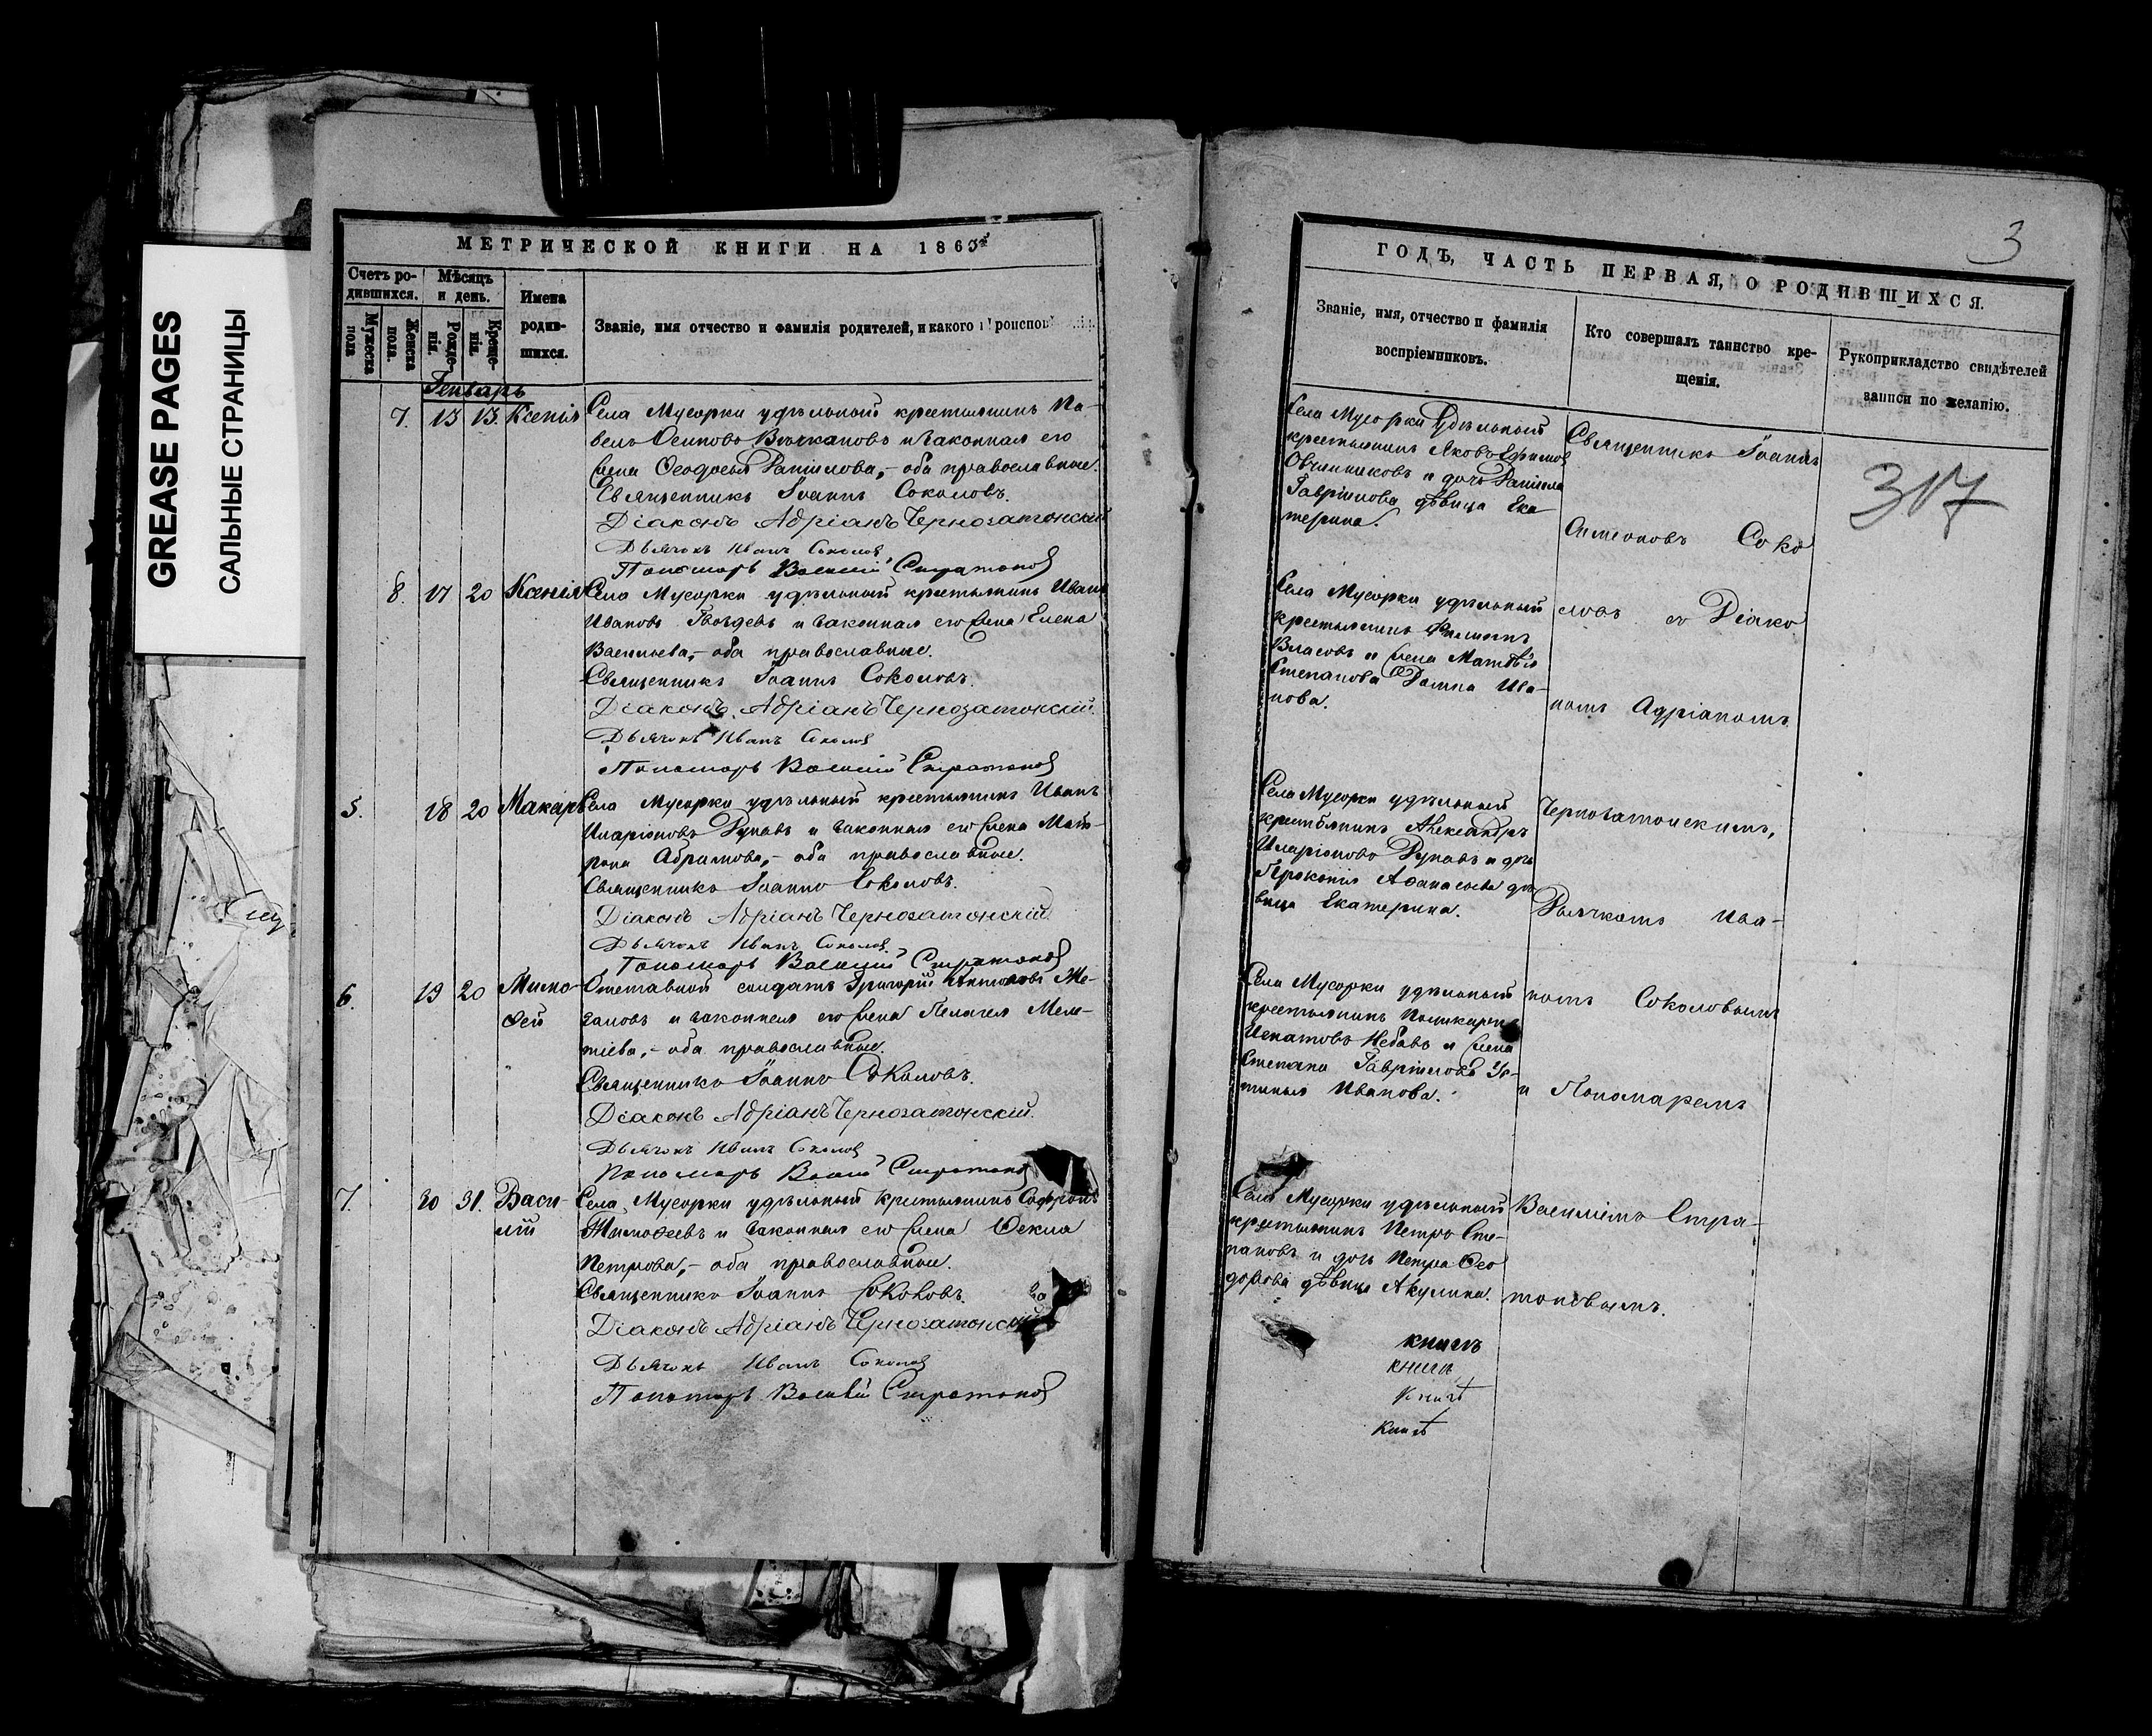 GREASE PAGES
САЛЬНЫЕ СТРАНИЦЫ
МЕТРИЧЕСКОЙ КНИГИ НА 1865й
Счетъ родившихся.
Мужеска пола
Женска пола.
Мѣсяцъ и день.
Рожденія.
Крещенія.
Имена родившихся.
Званіе, имя отчество и фамилія родителей, и какого
Генварь
7. 13 13. Ксенія
Села Мусорки удѣльный крестьянинъ Па-
велъ Осиповъ и законная его
жена Ѳеодосья Данилова,- оба православные.
Священникъ Іоаннъ Соколовъ.
Діаконъ Адріанъ Чернозатонскій
Дьячокъ Иванъ Соколов
Пономарь Василий Стратонов
8. 17 20 Ксенія
Села Мусорки удѣльный крестьянинъ Иванъ
Ивановъ Гвоздевъ и законная его жена Елена
Васильева,- оба православные.
Священникъ Іоаннъ Соколовъ.
Діаконъ Адріанъ Чернозатонскій.
Дьячокъ Иванъ Соколов
Пономарь Василий Стратонов
5. 18 20 Макаръ
Села Мусорки удѣльный крестьянинъ Иванъ
Иларіоновъ и законная его жена Мат-
рона Абрамова,- оба православные.
Священникъ Іоаннъ Соколовъ.
Діаконъ Адріанъ Чернозатонскій
Дьячокъ Иванъ Соколов.
Пономарь Василий Стратонов
6. 19 20 Тимо-
ѳей
Отставной солдатъ Григорій Антоновъ Же-
галовъ и законная его жена Пелагея Меле-
тіева,- оба православные.
Священникъ Іоаннъ Соколовъ.
Діаконъ Адріанъ Чернозатонскій.
Дьячокъ Иванъ Соколов
Пономарь Васил Стратонов
7. 30 31. Васи-
лій
Села Мусорки удѣльный крестьянинъ Софронъ
Тимоѳеевъ и законная его жена Ѳекла
Петрова,- оба православные.
Священникъ Іоаннъ Соколовъ.
Діаконъ Адріанъ Чернозатонскій
Дьячокъ Иванъ Соколов
Пономарь Василий Стратонов
3
ГОДЪ, ЧАСТЬ ПЕРВАЯ, О РОДИВШИХСЯ.
Званіе, имя, отчество и фамилія
воспріемниковъ.
Кто совершалъ таинство кре-
щенія.
Рукоприкладство свидѣтелей
записи по желанію.
317
Села Мусорки удѣльный
крестьянинъ Яковъ Ефимов
Овчинниковъ и дочь Данила
Гаврилова дѣвица Ека-
терина.
Села Мусорки удѣльный
крестьянинъ Филиппъ
Власовъ и жена Матвѣя
Степанова Домна Ива-
нова.
Села Мусорки удѣльный
крестьянинъ Александръ
Иларіоновъ и дочь
Прокопія Аѳанасьева дѣ-
вица Екатерина.
Села Мусорки удѣльный
крестьянинъ Поликарпъ
Игнатовъ и жена
Степана Гаврилова Ус-
тинья Иванова.
Села Мусорки удѣльный
крестьянинъ Петръ Сте-
пановъ и дочь Петра Ѳео-
дорова дѣвица Акулина.
Священникъ Іоаннъ
Симеоновъ Соко
ловъ съ Діако
номъ Адріаномъ
Чернозатонскимъ,
Дьячкомъ Ива-
номъ Соколовымъ
и Пономаремъ
Василіемъ Стра-
тоновымъ.
книгъ
книгъ
книгѣ
книгѣ